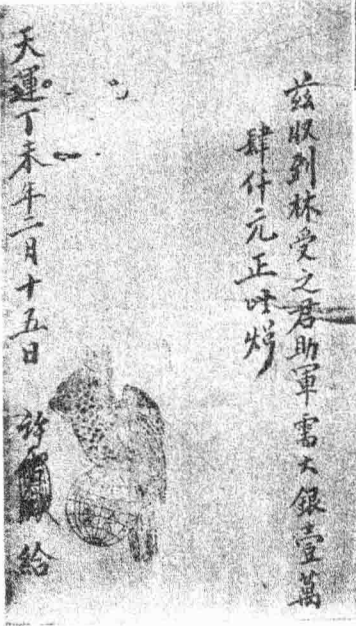 茲收到林受之君助軍需大銀壹萬
肆仟元正此炤
天運丁未年二月十五日 許雪 給